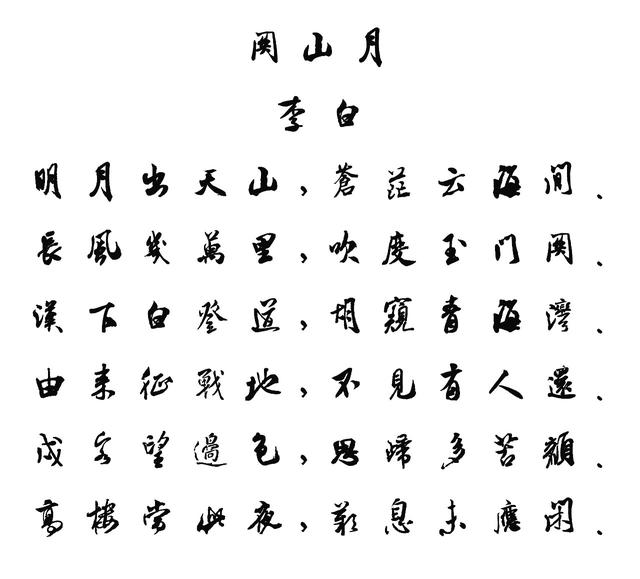 関山月
李白
明月出天山，蒼茫云海間.
長風幾萬里，吹度玉門関.
漢下白登道，胡窺青海灣.
由來征戰地，不見有人還.
戍客望邊色，思歸多苦顏.
高樓當此夜，歎息未應閑.